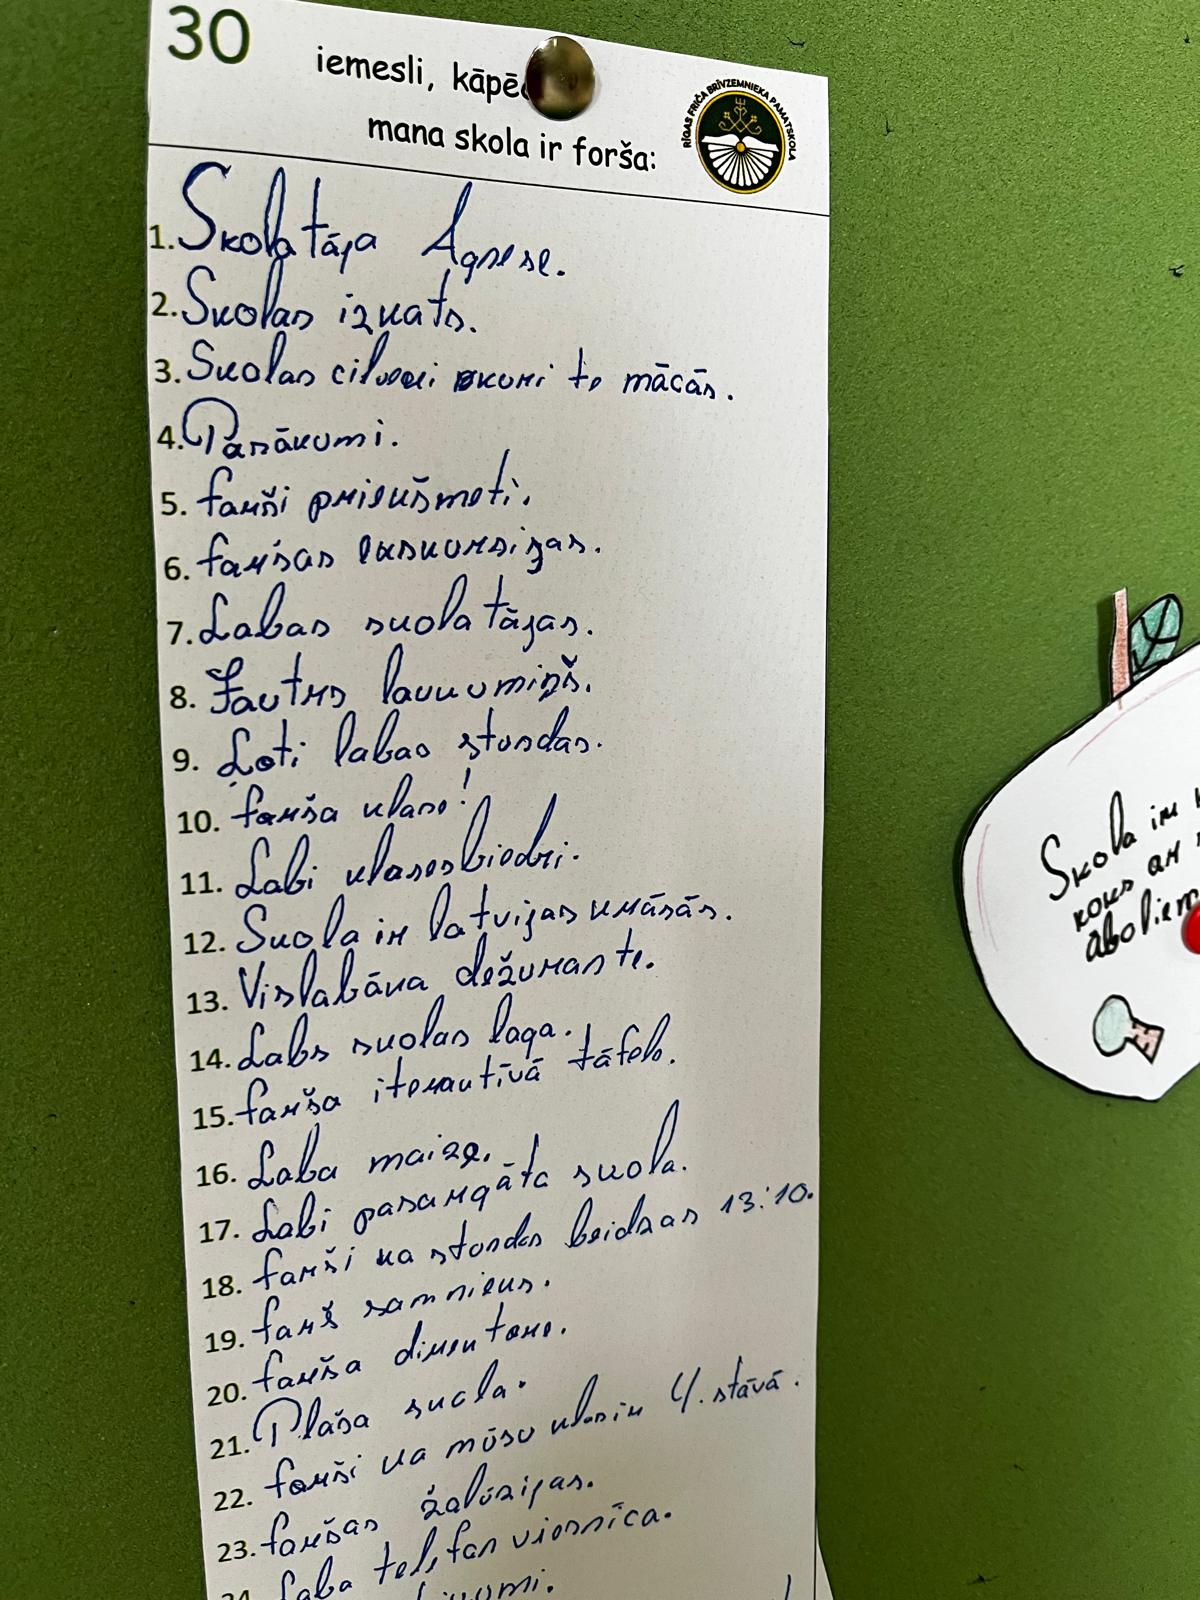 30
iemesli, kāpēc
mana skola ir forša:
RĪGAS FRIČA BRĪVZEMNIEKA PAMATSKOLA
1. Skolatāja Agnese.
2. Skolas izkats.
3. Skolas cilveki kuri te mācās.
4. Pasākumi.
5. farši priekšmeti.
6. faršas ekskursijas.
7. Labas skolatājas.
8. Jautrs laukumiņš.
9. Ļoti labas stundas.
10. farša klase!
11. Labi klasesbiedri.
12. Skola ir latvijas krāsās.
13. Vislabāka dežurante.
14. Labs skolas loga.
15. farša iterautīvā tāfele.
16. Laba maize.
17. Labi pasargāta skola.
18. farši ka stundas beidzas 13:10.
19. farš saimnieks.
20. farša direktore.
21. Plaša skola.
22. farši ka mūsu klase ir 4. stāvā.
23. faršas žalūzijas.
24. Laba telefon viesnīca.
Skola ir
koks ar
āboliem